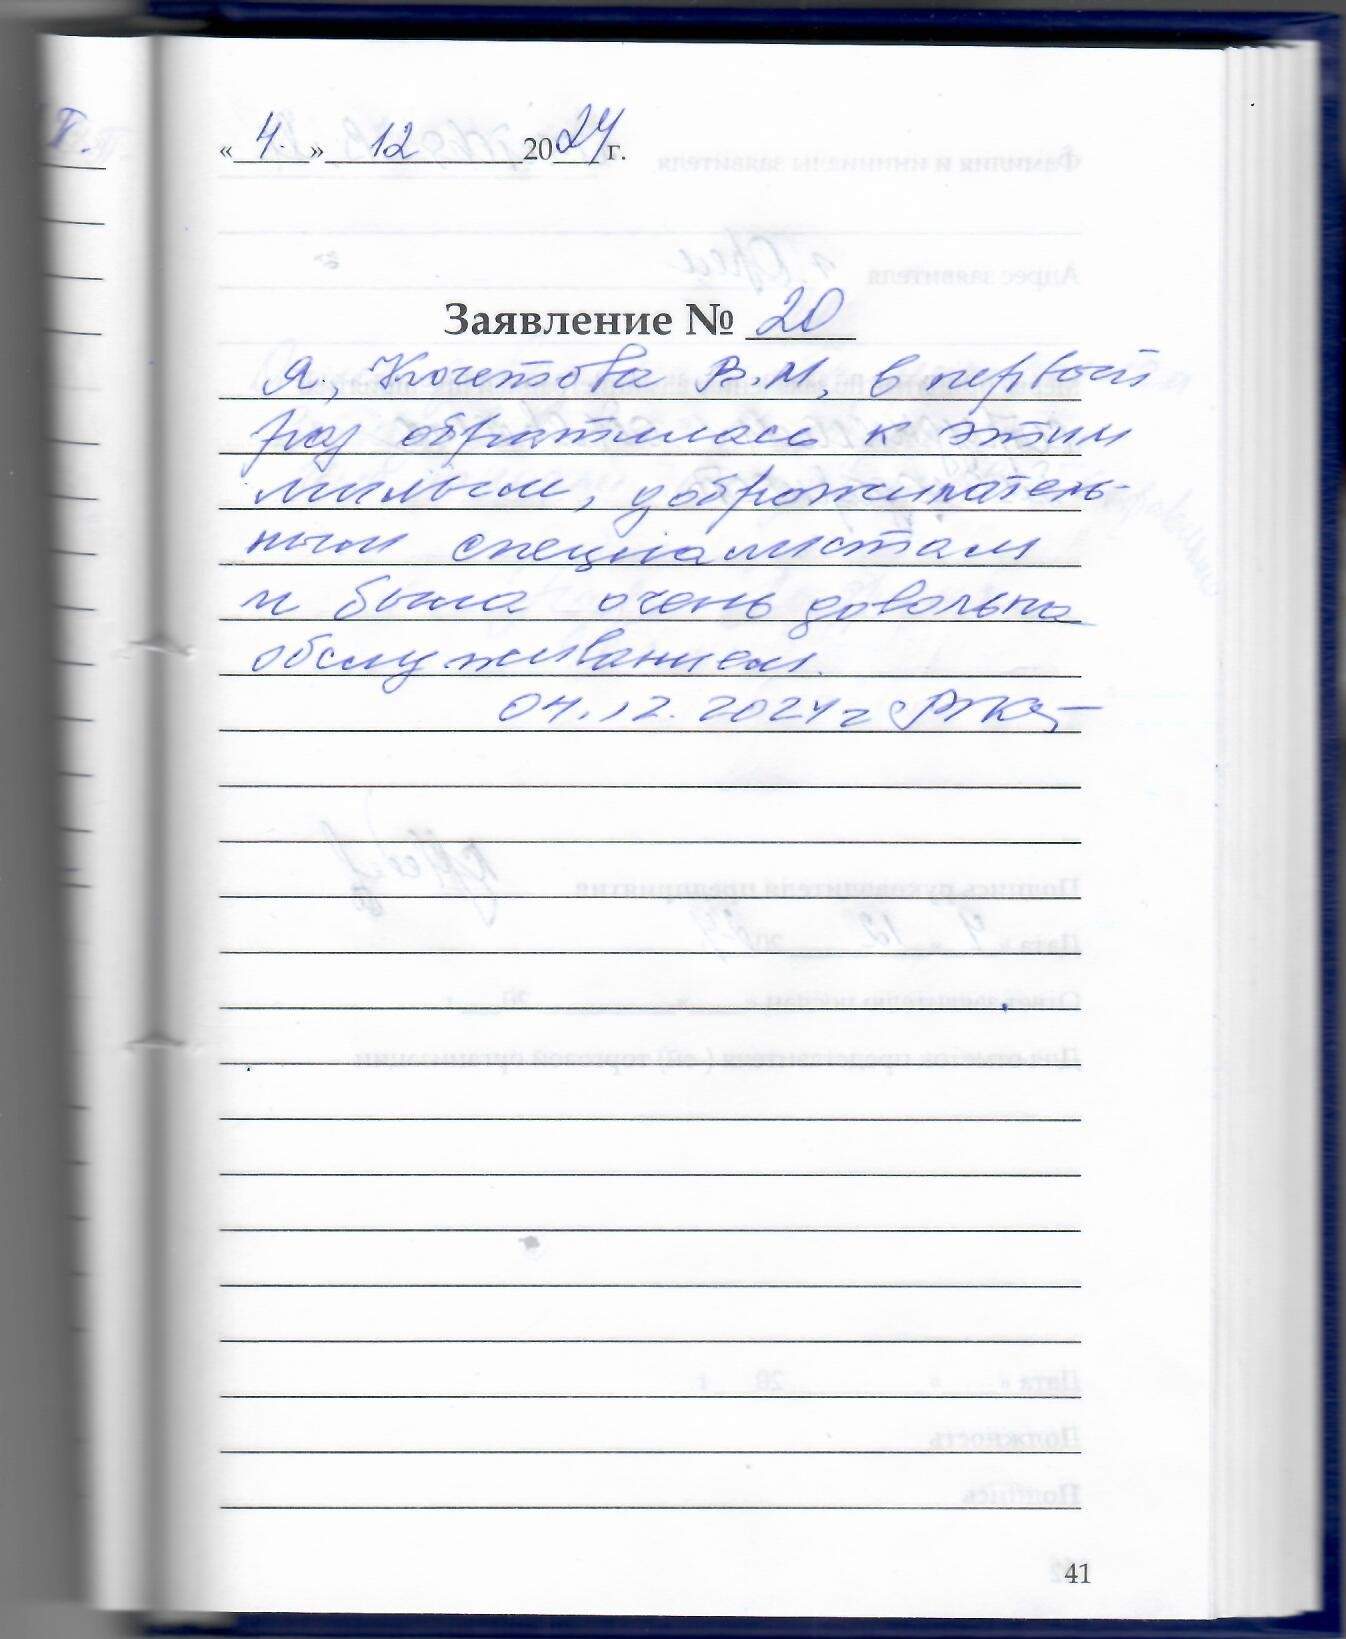 «4.» 12 2024 г.
Заявление № 20
Я, Кочетова В.М, в первый
раз обратилась к этим
милым, доброжилатель-
ным специалистам
и была очень довольна
обслуживанием.
04.12.2024г
41